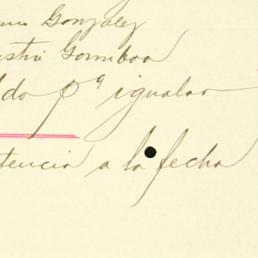 González
Gamboa
do pª igualar
tencia a la fecha